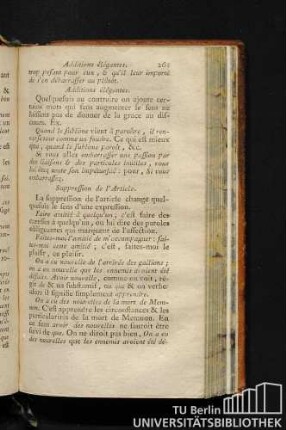 Additions élégantes. 261
trop pesant pour eux, & qu'il leur importe
de s'en débarrasser au plûtôt.
Additions élégantes.
Quelquefois au contraire on ajoute cer-
tains mots qui sans augmenter le sens ne
laissent pas de donner de la grace au dis-
cours. Ex.
Quand le sublime vient à paroître, il ren-
verse tout comme un foudre. Ce qui est mieux
que, quand le sublime paroît, &c.
Si vous allez embarrasser une passion par
des liaisons & des particules inutiles, vous
lui ôtez toute son impétuosité : pour, si vous
embarrassez.
Suppression de l'Article.
La suppression de l'article change quel-
quefois le sens d'une expression.
Faire amitié à quelqu'un, c'est faire des
caresses à quelqu'un, ou lui dire des paroles
obligeantes qui marquent de l'affection.
Faites-moi l'amitié de m'accompagner : fai-
tes-moi cette amitié ; c'est, faites-moi le
plaisir, ce plaisir.
On a eu nouvelle de l'arrivée des gallions ;
on a eu nouvelle que les ennemis avoient été
défaits. Avoir nouvelle, comme on voit, ré-
git & un substantif, un que & un verbe
dont il signifie simplement apprendre.
On a eu des nouvelles de la mort de Mem-
non. C'est apprendre les circonstances & les
particularités de la mort de Memnon. En
ce sens avoir des nouvelles ne sauroit être
suivi de que. On ne diroit pas bien, On a eu
des nouvelles que les ennemis avoient été dé-
TU Berlin
UNIVERSITÄTSBIBLIOTHEK